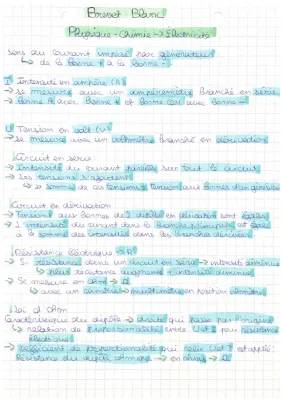 Brevet Blanc
Physique-Chimie → Électricité
sens du courant imposé par générateur
↳ de la borne + à la borne -
I intensité en ampère (A)
→ se mesure avec un ampèremètre branché en série
→ borne A avec borne + et borne com avec borne -
U Tension en volt (V)
→ se mesure avec un voltmètre branché en dérivation
Circuit en série
→ intensité du courant tout le circuit
→ Les tensions s'ajoutent
↳ somme de ces tensions = tension aux bornes d'un générateur
Circuit en dérivation
→ Tensions aux bornes de 2 dipôles en dérivation sont égales
→ L'intensité du courant dans la branche principale est égale
à la somme des intensités dans les branches dérivées
Résistance électrique → R
→ Si résistance dans un circuit en série → intensité diminue
↳ plus résistance augmente + intensité diminue
→ Se mesure en ohm → Ω
↳ avec un ohmmètre multimètre en position ohmmètre
Loi d'Ohm
Caractéristique du dipôle → droite qui passe par l'origine
↳ relation de proportionnalité entre U et I pour résistance
électrique
→ coefficient de proportionnalité qui relie U et I est appelé
Résistance du dipôle ohmique → en ohms → Ω